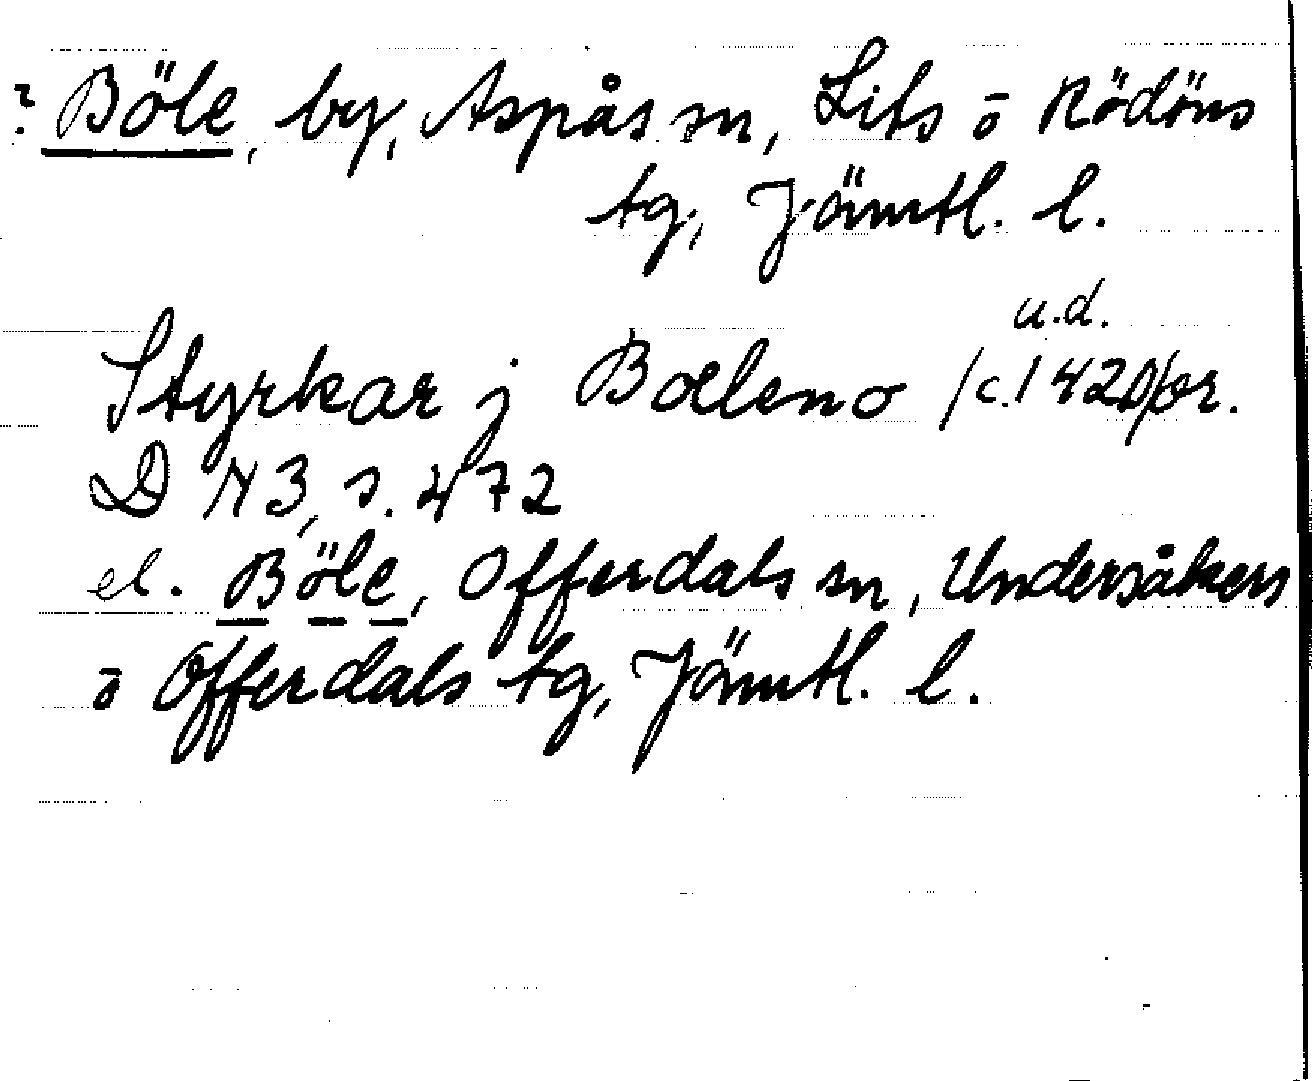 ? Böle, by, Aspås sn, Lits o Rödöns
tg, Jämtl. l.
u.d.
Styrkar j Bæleno /c. 1420/or.
DN 3, s. 472
el. Böle, Offerdals sn, Undersåkers
o Offerdals tg, Jämtl. l.